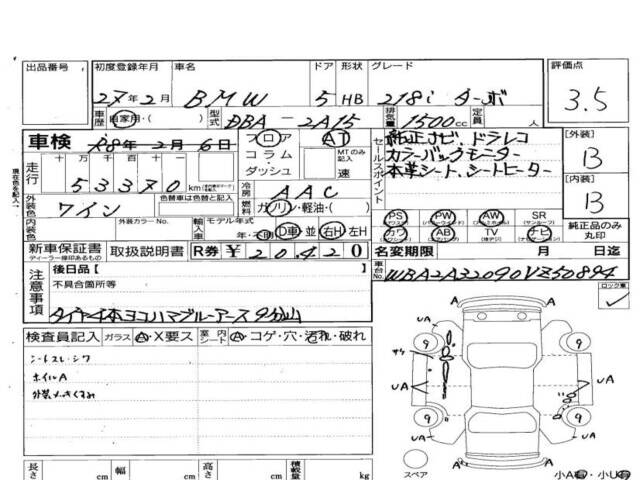 出品番号 初度登録年月 車名 ドア 形状 グレード 評価点
27年2月 BMW 5 HB 218i ターボ 3.5
車歴 自家用・( ) 型式 DBA-2A15 排気量 1500cc 定員 人
車検 年2月6日 フロア AT
コラム・ダッシュ MTのみ記入 速
走行 十万千百十 km
53370
冷房 AAC
外装色 ワイン 色替車は色替と記入 燃料 ガソリン・軽油・( )
内装色 外装カラーNo. 輸入車 モデル年式 年・ D車 並 右H 左H
新車保証書 取扱説明書 R券 ¥20,420
ディーラー捺印あるもの
セールスポイント
純正ナビ、ドラレコ
カラーバックモニター
本革シート、シートヒーター
【外装】
B
【内装】
B
PS PW AW SR
カワ AB TV ナビ
純正品のみ丸印
名変期限 月 日迄
車台No. WBA2A32090VZ50894
注意事項 後日品【 】
不具合箇所等
タイヤ4本ヨコハマブルーアース 9分山
現在色を記入
ロック車
検査員記入 ガラス A・X要ス 室内シート A・コゲ・穴・汚れ・破れ
シートスレ・シワ
ホイルA
長さ cm 幅 cm 高さ cm 積載量 kg
A
UA UA
9 9
UA UA
9 9
A
スペア 小A 小U